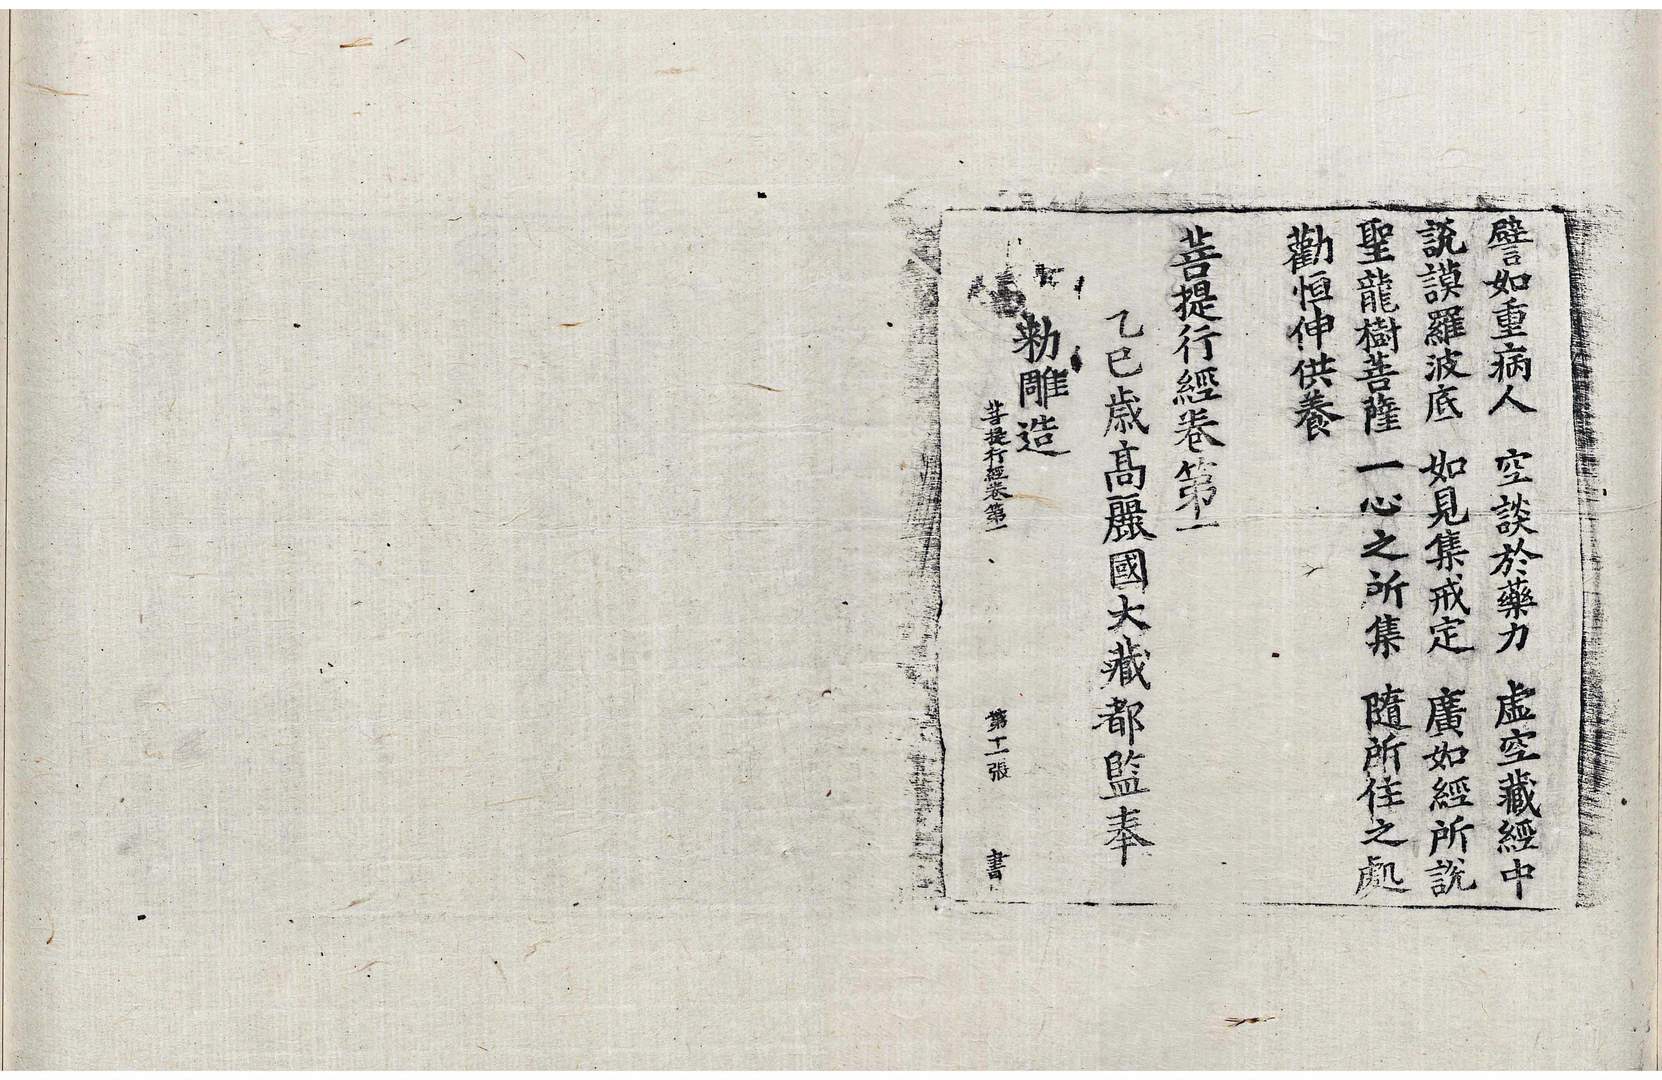 譬如重病人 空談於藥力 虛空藏經中
說謨羅波底 如見集戒定 廣如經所說
聖龍樹菩薩 一心之所集 隨所住之處
勸恒伸供養
菩提行經卷第一
乙巳歳高麗國大藏都監奉
勅雕造
菩提行經卷第一 第十一張 書